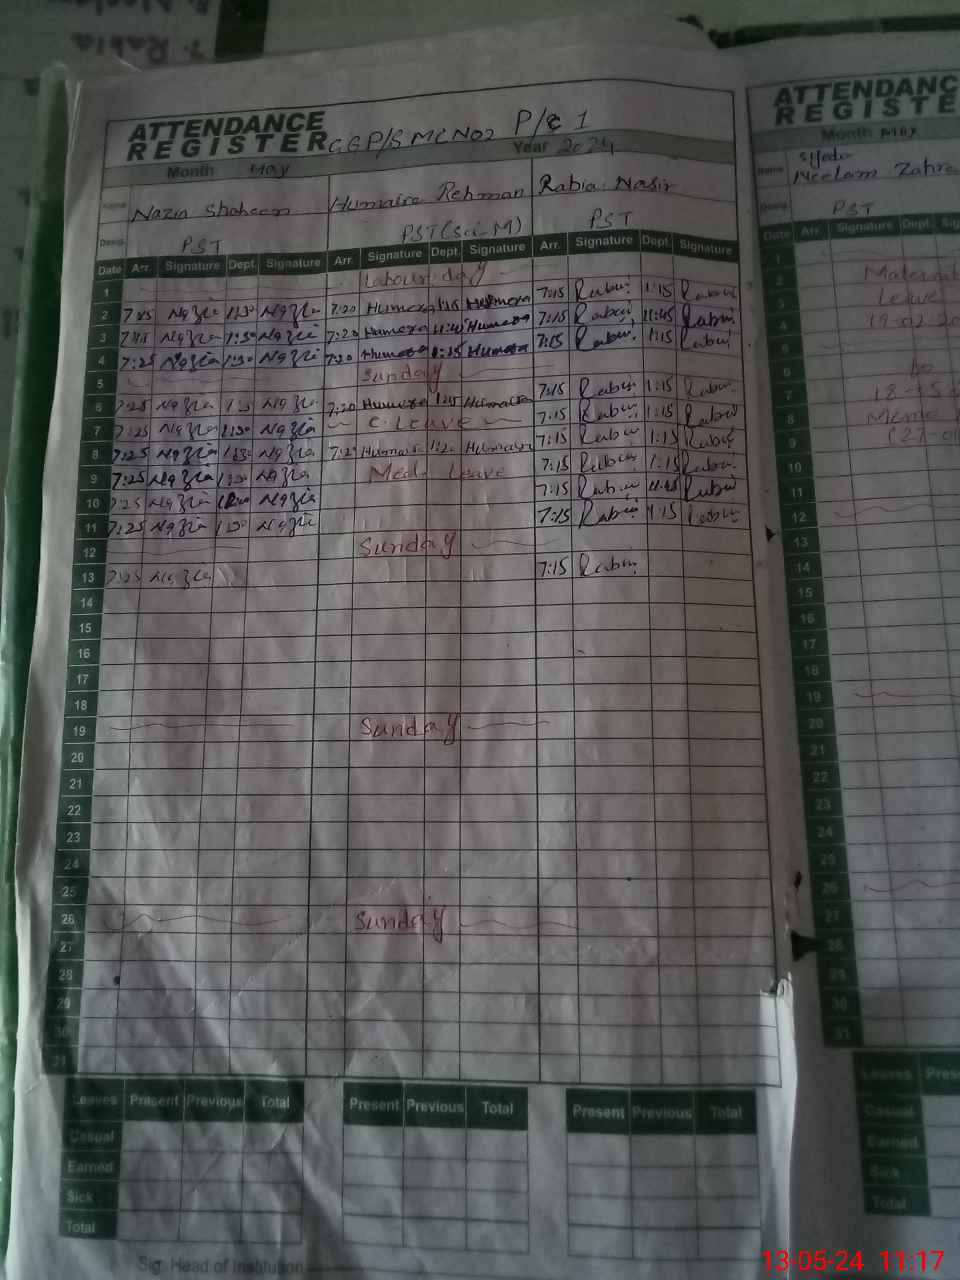 7. Rabia
ATTENDANCE
REGISTER GGP/S MC NO2 P/E 1
Month May Year 2024
Name Nazia Shaheen Humaira Rehman Rabia Nasir
Desig. PST PST (Sci-M) PST
Date Arr. Signature Dept. Signature Arr. Signature Dept. Signature Arr. Signature Dept. Signature
1 Labour day
2 Nazia Nazia 7:20 Humera Humera 7:15 Rabia 1:15 Rabia
3 Nazia Nazia 7:20 Humera Humera 7:15 Rabia 11:45 Rabia
4 7:25 Nazia Nazia 7:20 Humera Humera 7:15 Rabia 1:15 Rabia
5 Sunday
6 7:25 Nazia Nazia 7:20 Humera Humaira 7:15 Rabia 1:15 Rabia
7 7:25 Nazia 1:30 Nazia C. Leave 7:15 Rabia 1:15 Rabia
8 7:25 Nazia Nazia Humaira Humaira 7:15 Rabia 1:15 Rabia
9 7:25 Nazia Nazia Med. Leave 7:15 Rabia 1:15 Rabia
10 7:25 Nazia Nazia 7:15 Rabia 11:45 Rabia
11 7:25 Nazia Nazia 7:15 Rabia 1:15 Rabia
12 Sunday
13 7:25 Nazia 7:15 Rabia
14
15
16
17
18
19 Sunday
20
21
22
23
24
25
26 Sunday
27
28
29
30
31
Leaves Present Previous Total Present Previous Total Present Previous Total
Casual
Earned
Sick
Total
Sig. Head of Institution
ATTENDANCE
REGISTE
Month May
Name Syeda
Neelam Zahra
Desig. PST
Date Arr. Signature Dept. Sig
1
2
3 Leave
4
5
6
7
8
9
10
11
12
13
14
15
16
17
18
19
20
21
22
23
24
25
26
27
28
29
30
31
Leaves Pres
Casual
Earned
Sick
Total
13-05-24 11:17